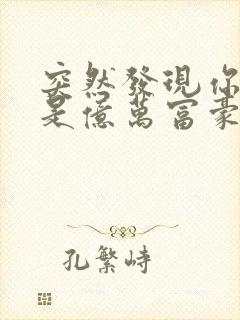 突然發現你
是億萬富豪
孔繁峙